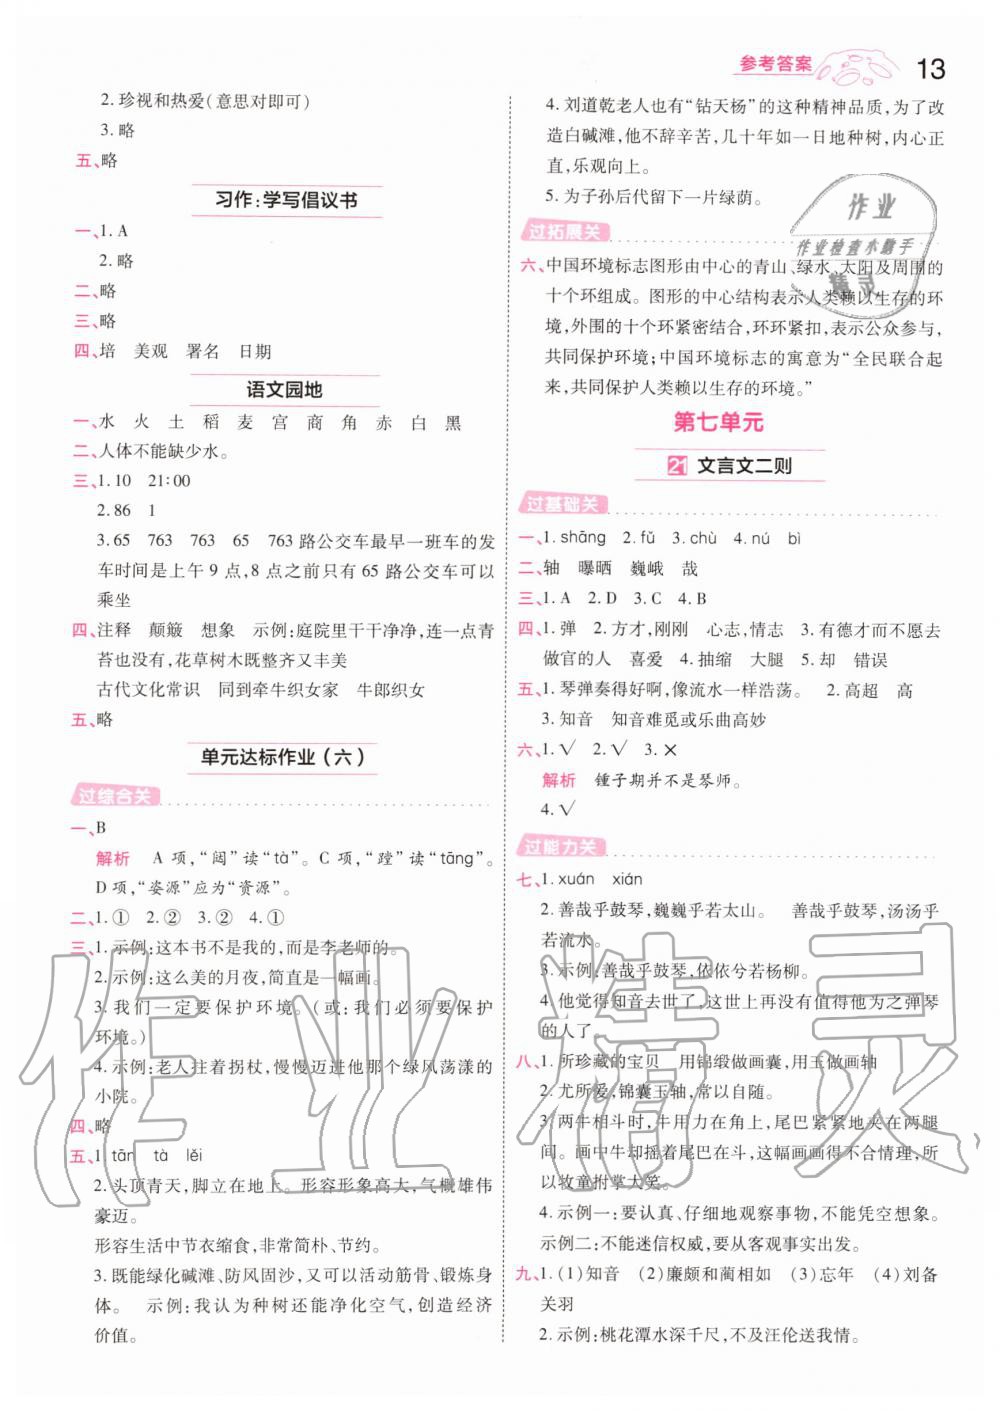 参考答案 13
2.珍视和热爱(意思对即可)
3.略
五、略
习作:学写倡议书
一、1.A
2.略
二、略
三、略
四、培 美观 署名 日期
语文园地
一、水 火 土 稻 麦 宫 商 角 赤 白 黑
二、人体不能缺少水。
三、1.10 21:00
2.86 1
3.65 763 763 65 763路公交车最早一班车的发
车时间是上午9点,8点之前只有65路公交车可以
乘坐
四、注释 颠簸 想象 示例:庭院里干干净净,连一点青
苔也没有,花草树木既整齐又丰美
古代文化常识 同到牵牛织女家 牛郎织女
五、略
单元达标作业(六)
过综合关
一、B
解析 A项,“闼”读“tà”。C项,“蹚”读“tāng”。
D项,“姿源”应为“资源”。
二、1.① 2.② 3.② 4.①
三、1.示例:这本书不是我的,而是李老师的。
2.示例:这么美的月夜,简直是一幅画。
3.我们一定要保护环境。(或:我们必须要保护
环境。)
4.示例:老人拄着拐杖,慢慢迈进他那个绿风荡漾的
小院。
四、略
五、1.tān tà lěi
2.头顶青天,脚立在地上。形容形象高大,气概雄伟
豪迈。
形容生活中节衣缩食,非常简朴、节约。
3.既能绿化碱滩、防风固沙,又可以活动筋骨、锻炼身
体。 示例:我认为种树还能净化空气,创造经济
价值。
4.刘道乾老人也有“钻天杨”的这种精神品质,为了改
造白碱滩,他不辞辛苦,几十年如一日地种树,内心正
直,乐观向上。
5.为子孙后代留下一片绿荫。
过拓展关
六、中国环境标志图形由中心的青山、绿水、太阳及周围的
十个环组成。图形的中心结构表示人类赖以生存的环
境,外围的十个环紧密结合,环环紧扣,表示公众参与,
共同保护环境;中国环境标志的寓意为“全民联合起
来,共同保护人类赖以生存的环境。”
第七单元
21 文言文二则
过基础关
一、1.shāng 2.fǔ 3.chù 4.nú bì
二、轴 曝晒 巍峨 哉
三、1.A 2.D 3.C 4.B
四、1.弹 2.方才,刚刚 心志,情志 3.有德才而不愿去
做官的人 喜爱 4.抽缩 大腿 5.却 错误
五、1.琴弹奏得好啊,像流水一样浩荡。 2.高超 高
3.知音 知音难觅或乐曲高妙
六、1.√ 2.√ 3.×
解析 锺子期并不是琴师。
4.√
过能力关
七、1.xuán xián
2.善哉乎鼓琴,巍巍乎若太山。 善哉乎鼓琴,汤汤乎
若流水。
3.示例:善哉乎鼓琴,依依兮若杨柳。
4.他觉得知音去世了,这世上再没有值得他为之弹琴
的人了。
八、1.所珍藏的宝贝 用锦缎做画囊,用玉做画轴
2.尤所爱,锦囊玉轴,常以自随。
3.两牛相斗时,牛用力在角上,尾巴紧紧地夹在两腿
间。画中牛却摇着尾巴在斗,这幅画画得不合情理,所
以牧童拊掌大笑。
4.示例一:要认真、仔细地观察事物,不能凭空想象。
示例二:不能迷信权威,要从客观事实出发。
九、1.(1)知音 (2)廉颇和蔺相如 (3)忘年 (4)刘备
关羽
2.示例:桃花潭水深千尺,不及汪伦送我情。
作业
作业检查小助手
精灵
作业精灵